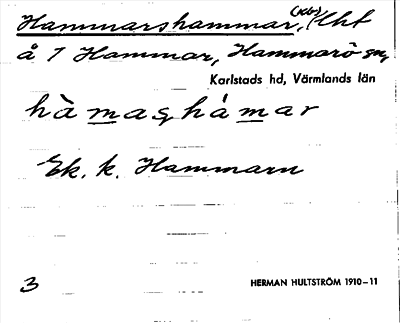 Hammarshammar, (Kbr) lht
å 1 Hammar, Hammarö sn,
Karlstads hd, Värmlands län
hàmashámar
Ek. k. Hammarn
3
HERMAN HULTSTRÖM 1910–11